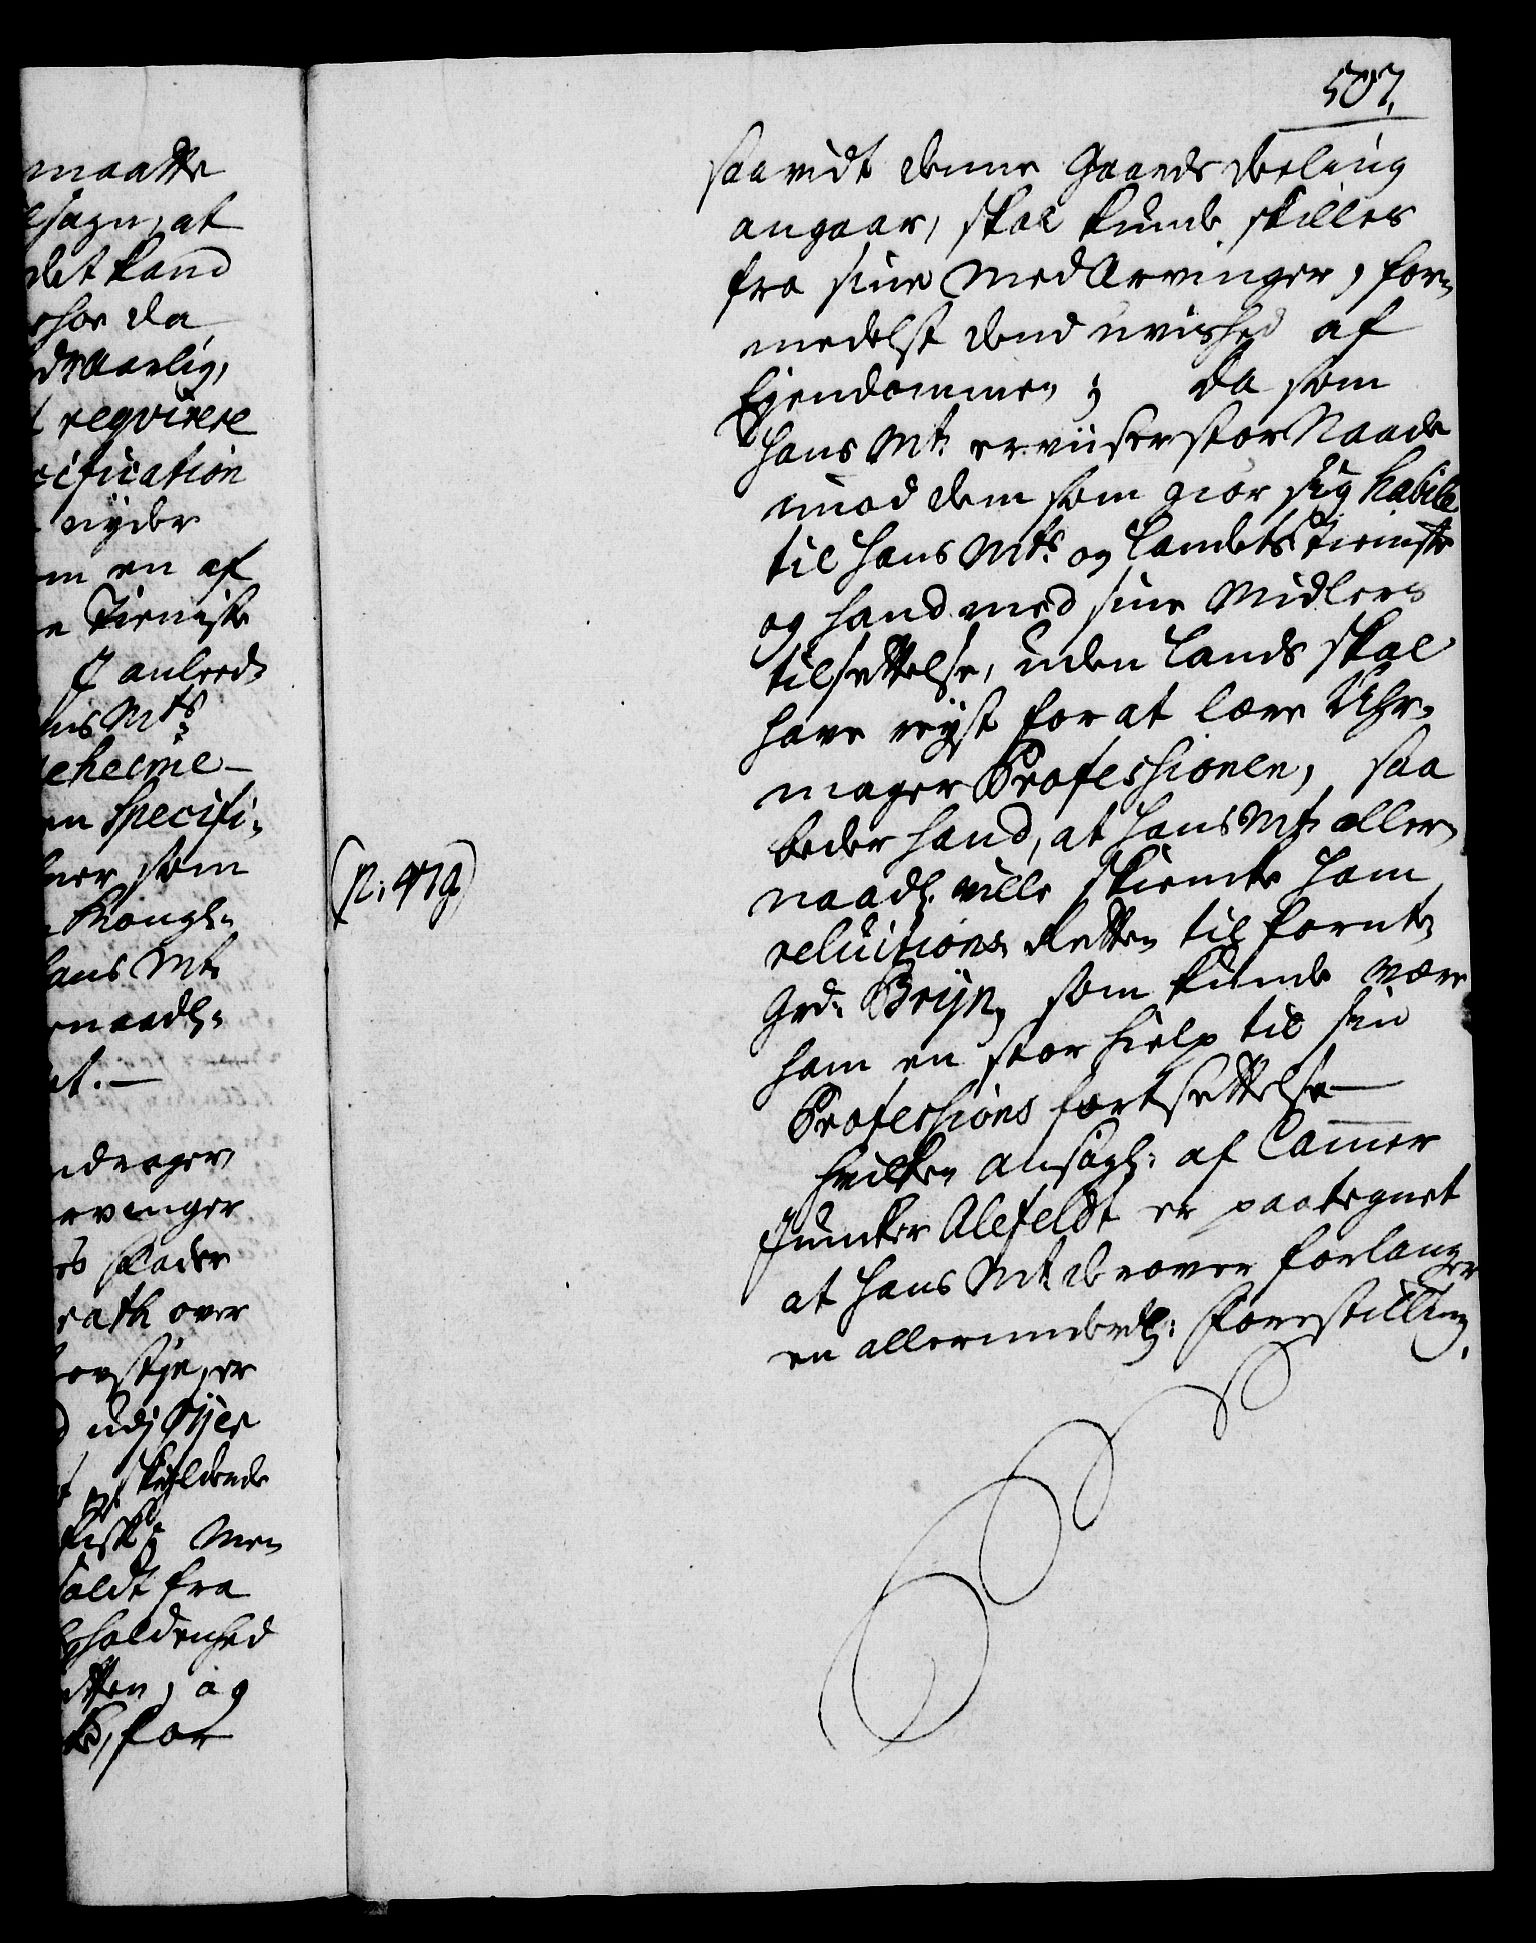 507.
saavidt denne Gaards deeling
angaar, skal kunde skilles
fra sine Med Arvinger, for-
medelst dend uvished af
Eyendommen; da som
Hans Mt: erviiser stor Naade
imod dem som giør sig habile
til Hans Mts: og Landets Tieniste
og hand med sine Midlers
tilsettelse, uden Lands skal
have reyst for at lære Uhr-
mager Professionen, saa
beder hand, at Hans Mt: aller-
naadl. ville skiencke ham
reluitions Retten til fornt:
Grd: Bryn, som kunde være
ham en stor hielp til sin
Professions fortsettelse
hvilken ansøgl: af Cammer
Juncker Alefeldt er paategnet
at Hans Mt: derover forlanger
en allerunderdl: Forestilling.
(N: 479)
maatte
sagn, at
det kand
hor da
Aarlig,
reqvirere
cification
nyder
en af
Tieniste
J anleed-
ns Mts:
eheime
n specifi-
ner som
Kongl-
ans Mt:
naadl-
t.
ndrager
rvinger
s Fader
rath over
er
udj Øyer
skyldende
fisk; Men
oldt fra
holdenhed
tten, og
for